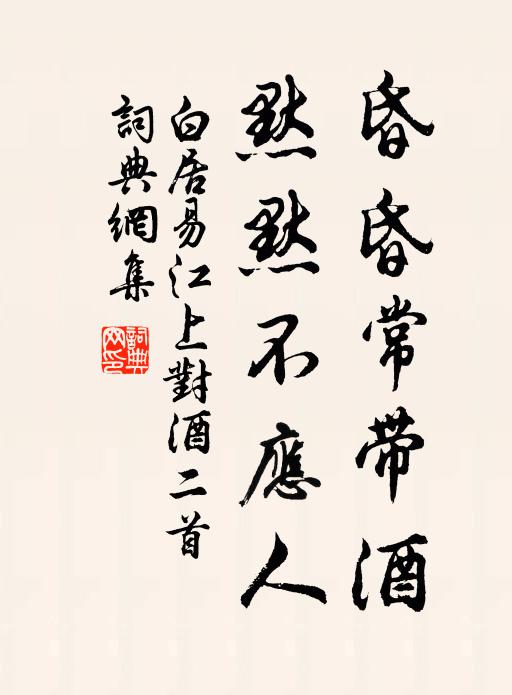 昏昏常带酒
默默不應人
白居易江上對酒二首
詞典網集
詞典網印